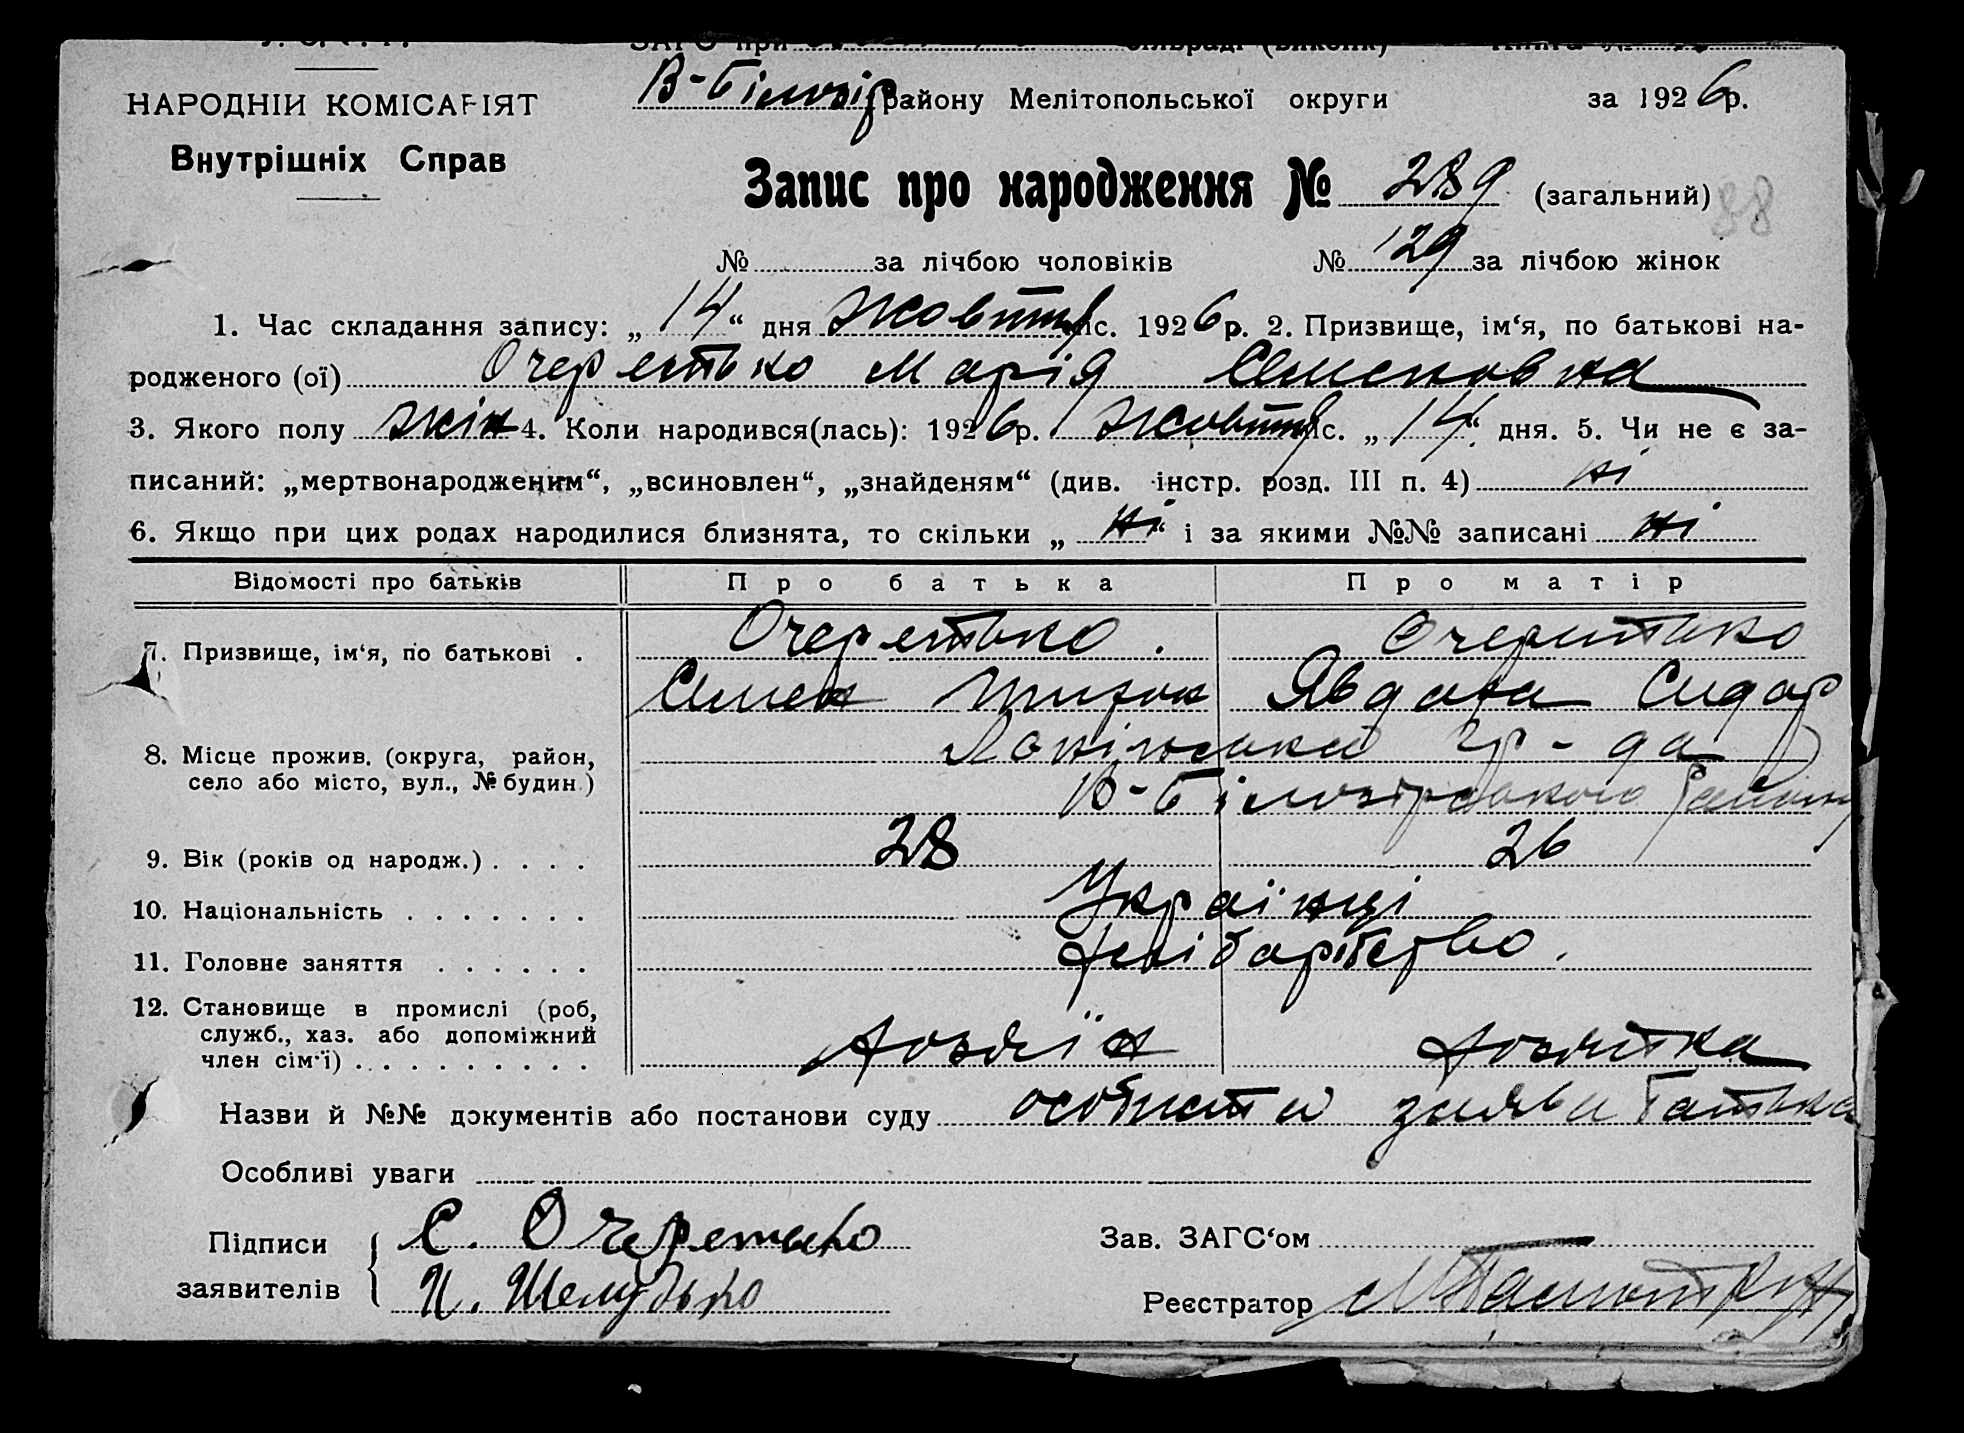 НАРОДНІЙ КОМІСАРІЯТ
Внутрішніх Справ
В-Білозір району Мелітопольської округи за 1926 р.
Запис про народження № 289 (загальний) 88
№ за лічбою чоловіків № 129 за лічбою жінок
1. Час складання запису: „14“ дня жовтня міс. 1926 р. 2. Призвище, ім‘я, по батькові на-
родженого (ої) Очеретько Марія Семеновна
3. Якого полу жін 4. Коли народився(лась): 1926 р. жовтня міс. „14“ дня. 5. Чи не є за-
писаний: „мертвонародженим“, „всиновлен“, „знайденям“ (див. інстр. розд. III п. 4) ні
6. Якщо при цих родах народилися близнята, то скільки „ні“ і за якими №№ записані ні
Відомості про батьків Про батька Про матір
7. Призвище, ім‘я, по батькові . Очеретько . Очеретько
Семен Явдоха Сидор
8. Місце прожив. (округа, район, гр-да
село або місто, вул., № будин.) В-Білозірського району
9. Вік (років од народж.) . . . . 28 26
10. Національність . . . . . . . Українці
11. Головне заняття . . . . . . хліборобство.
12. Становище в промислі (роб,
служб., хаз. або допоміжний
член сім‘ї) . . . . . . . . . . Хозяїн Хозяйка
Назви й №№ документів або постанови суду особиста заява батька
Особливі уваги
Підписи С. Очеретько Зав. ЗАГС‘ом
заявителів П. Шелудько Реєстратор